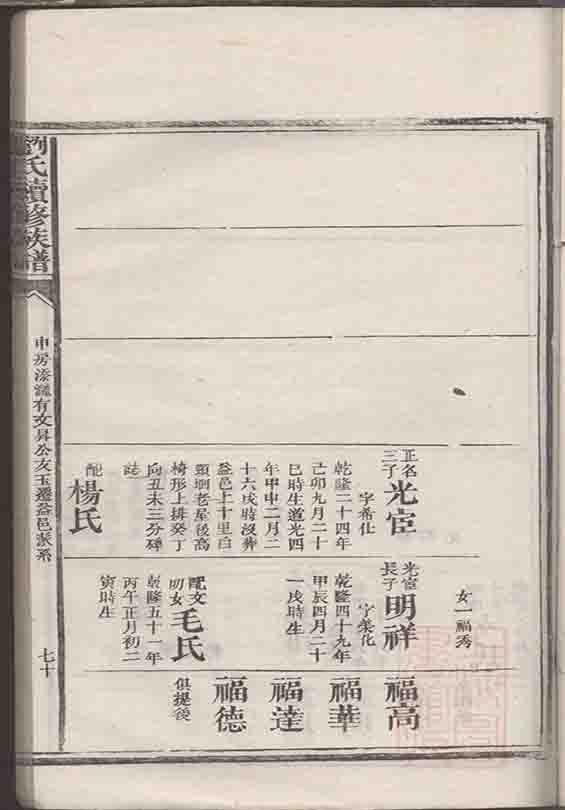 正名
三子
光宦
字希仕
乾隆二十四年
己卯九月二十
巳時生道光四
年甲申二月二
十六戌時沒葬
益邑上十里白
頭塅老屋後高
椅形上排癸丁
向丑未三分碑
誌
配
楊氏
女一福秀
光宦
長子
明祥
字美化
乾隆四十九年
甲辰四月二十
一戌時生
配文
明女
毛氏
乾隆五十一年
丙午正月初二
寅時生
福高
福華
福達
福德
俱提後
劉氏續修族譜
申房漆灘有文昇公友玉遷益邑派系
七十